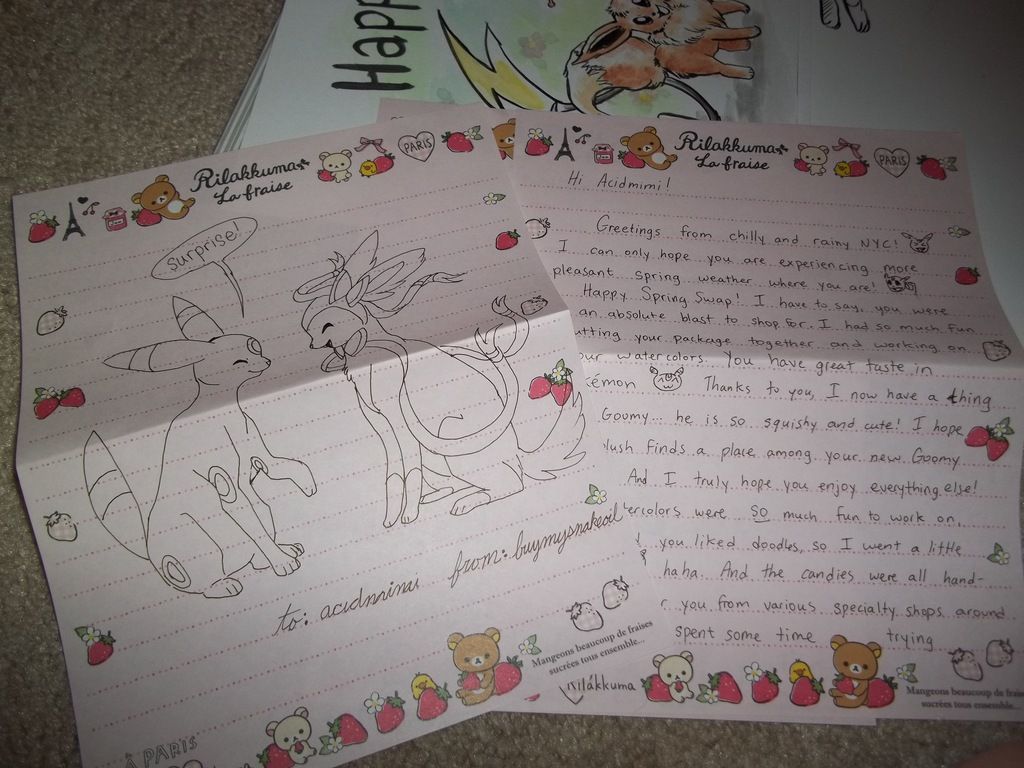 Happ
Rilakkuma
La fraise
PARIS
surprise!
to: acidmimi from: buymysnakeoil
Mangeons beaucoup de fraises
sucrées tous ensemble...
À PARIS
Rilakkuma
La fraise
PARIS
Hi Acidmimi!
Greetings from chilly and rainy NYC!
I can only hope you are experiencing more
pleasant spring weather where you are!
Happy Spring Swap! I have to say, you were
an absolute blast to shop for. I had so much fun
utting your package together and working on
our watercolors. You have great taste in
kémon Thanks to you, I now have a thing
Goomy... he is so squishy and cute! I hope
lush finds a place among your new Goomy
And I truly hope you enjoy everything else!
ercolors were so much fun to work on,
you liked doodles, so I went a little
haha. And the candies were all hand-
r you from various specialty shops around
spent some time trying
rilakkuma
Mangeons beaucoup de fraises
sucrées tous ensemble...